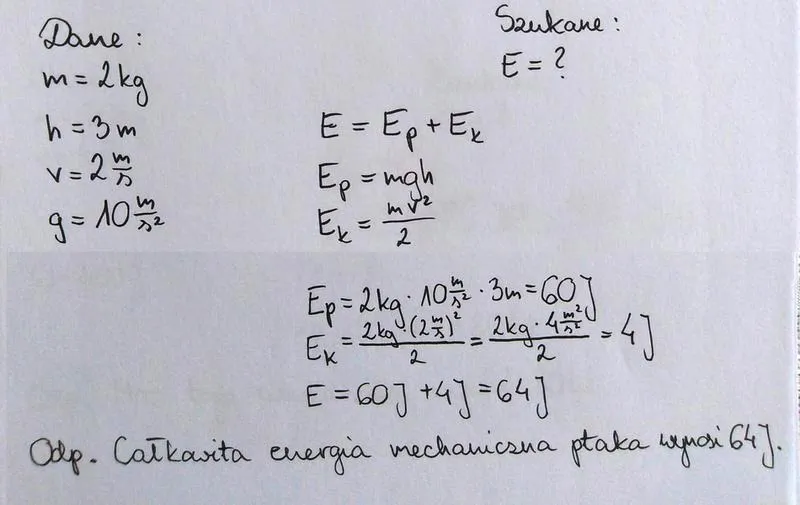 Dane:
m = 2kg
h = 3m
v = 2 m/s
g = 10 m/s²
Szukane:
E = ?
E = Eₚ + Eₖ
Eₚ = mgh
Eₖ = mv²/2
Eₚ = 2kg · 10 m/s² · 3m = 60J
Eₖ = 2kg · (2 m/s)²/2 = 2kg · 4 m²/s²/2 = 4J
E = 60J + 4J = 64J
Odp. Całkowita energia mechaniczna ptaka wynosi 64J.